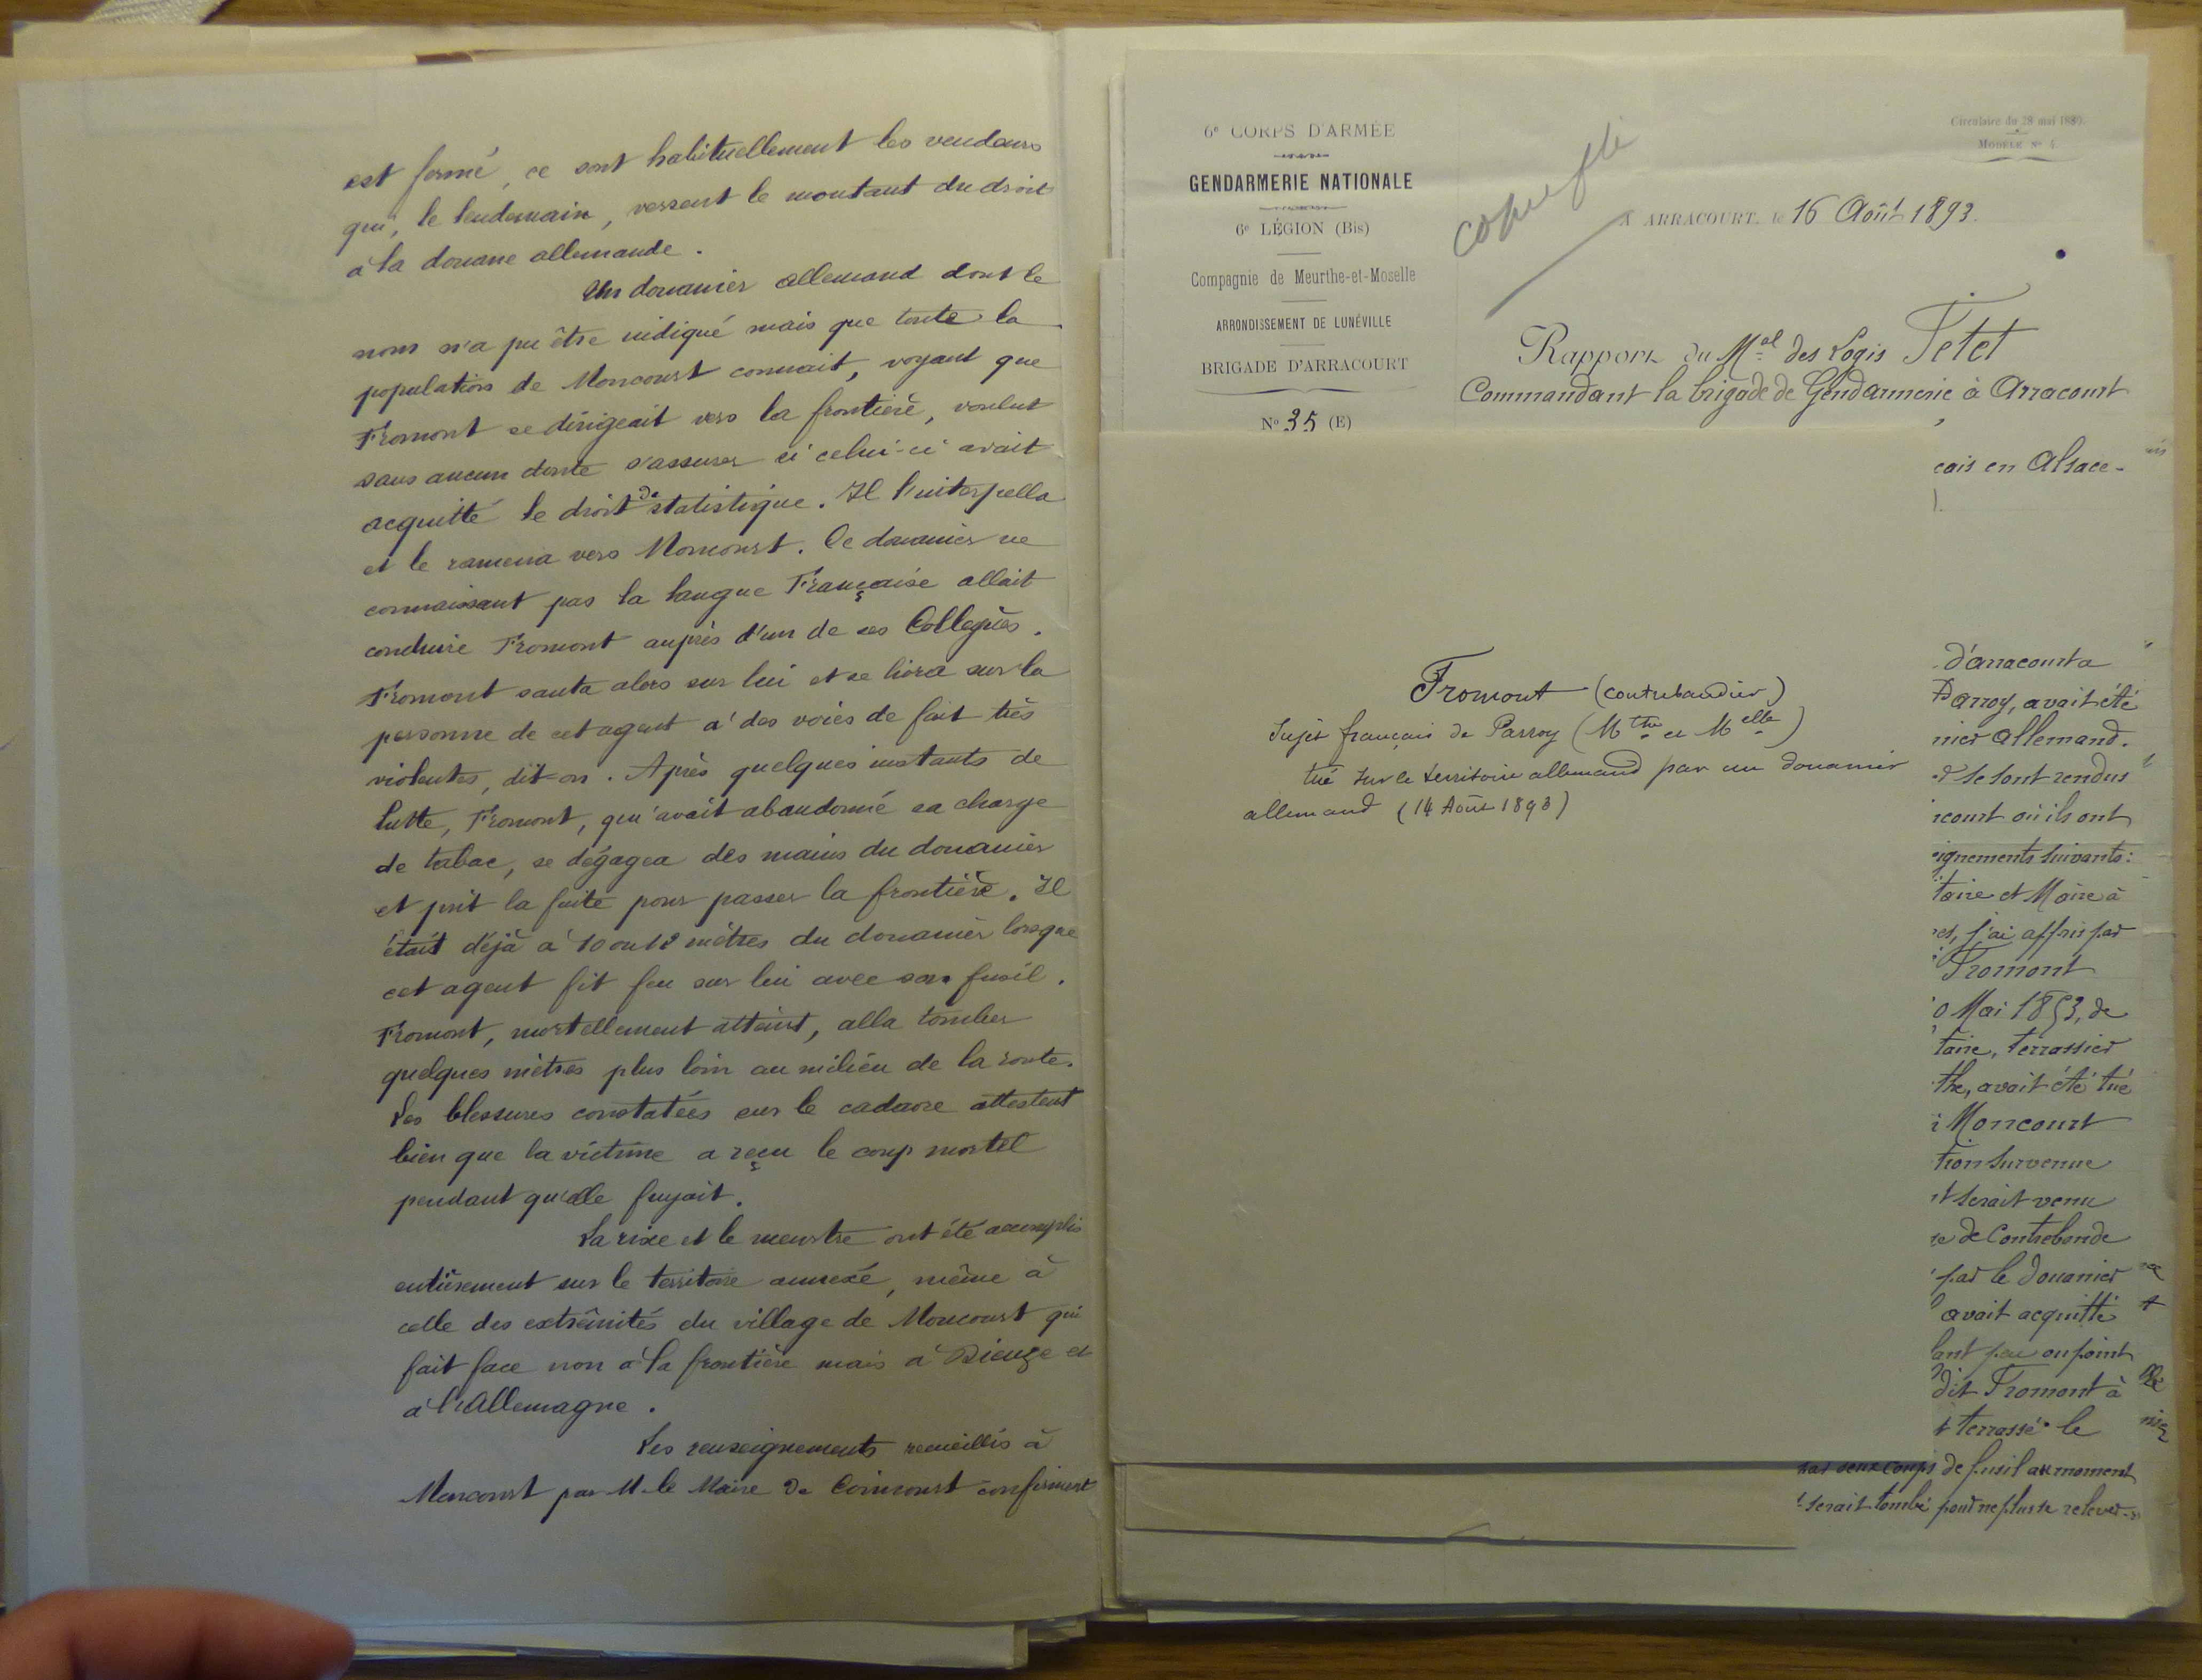 est fermé, ce sont habituellement les vendeurs
qui, le lendemain, versent le montant du droit
à la douane allemande.
Un douanier allemand dont le
nom n'a pu être indiqué mais que toute la
population de Moncourt connait, voyant que
Fromont se dirigeait vers la frontière, voulut
sans aucun doute s'assurer si celui-ci avait
acquitté le droit de statistique. Il l'interpella
et le ramena vers Moncourt. Ce douanier ne
connaissant pas la langue Française allait
conduire Fromont auprès d'un de ses Collègues.
Fromont sauta alors sur lui et se livra sur la
personne de cet agent à des voies de fait très
violentes, dit-on. Après quelques instants de
lutte, Fromont, qui avait abandonné sa charge
de tabac, se dégagea des mains du douanier
et prit la fuite pour passer la frontière. Il
était déjà à 10 ou 12 mètres du douanier lorsque
cet agent fit feu sur lui avec son fusil.
Fromont, mortellement atteint, alla tomber
quelques mètres plus loin au milieu de la route.
Les blessures constatées sur le cadavre attestent
bien que la victime a reçu le coup mortel
pendant qu'elle fuyait.
La rixe et le meurtre ont été accomplis
entièrement sur le territoire annexé, même à
celle des extrêmités du village de Moncourt qui
fait face non à la frontière mais à Dieuze et
à l'Allemagne.
Les renseignements recueillis à
Moncourt par M. le Maire de Coincourt confirment
6e CORPS D'ARMÉE
GENDARMERIE NATIONALE
6e LÉGION (Bis)
Compagnie de Meurthe-et-Moselle
ARRONDISSEMENT DE LUNÉVILLE
BRIGADE D'ARRACOURT
No 35 (E)
Circulaire du 28 mai 1880.
MODÈLE No 4.
A ARRACOURT, le 16 Août 1893.
Rapport du Mal des Logis Tetet
Commandant la brigade de Gendarmerie à Arracourt
çais en Alsace-
Fromont (contrebandier)
Sujet français de Parroy (Mthe et Melle)
tué sur le territoire allemand par un douanier
allemand (14 Août 1893)
d'arracourt a
Parroy, avait été
nier allemand.
se sont rendus
court où ils ont
ignements suivants:
taire et Maire à
j'ai appris par
Fromont
0 Mai 1853, de
taire, terrassier
the, avait été tué
Moncourt
tion survenue
serait venu
de Contrebande
par le douanier
avait acquitté
lant peu ou point
dit Fromont à
terrassé le
par deux coups de fusil au moment
serait tombé pour ne plus se relever.